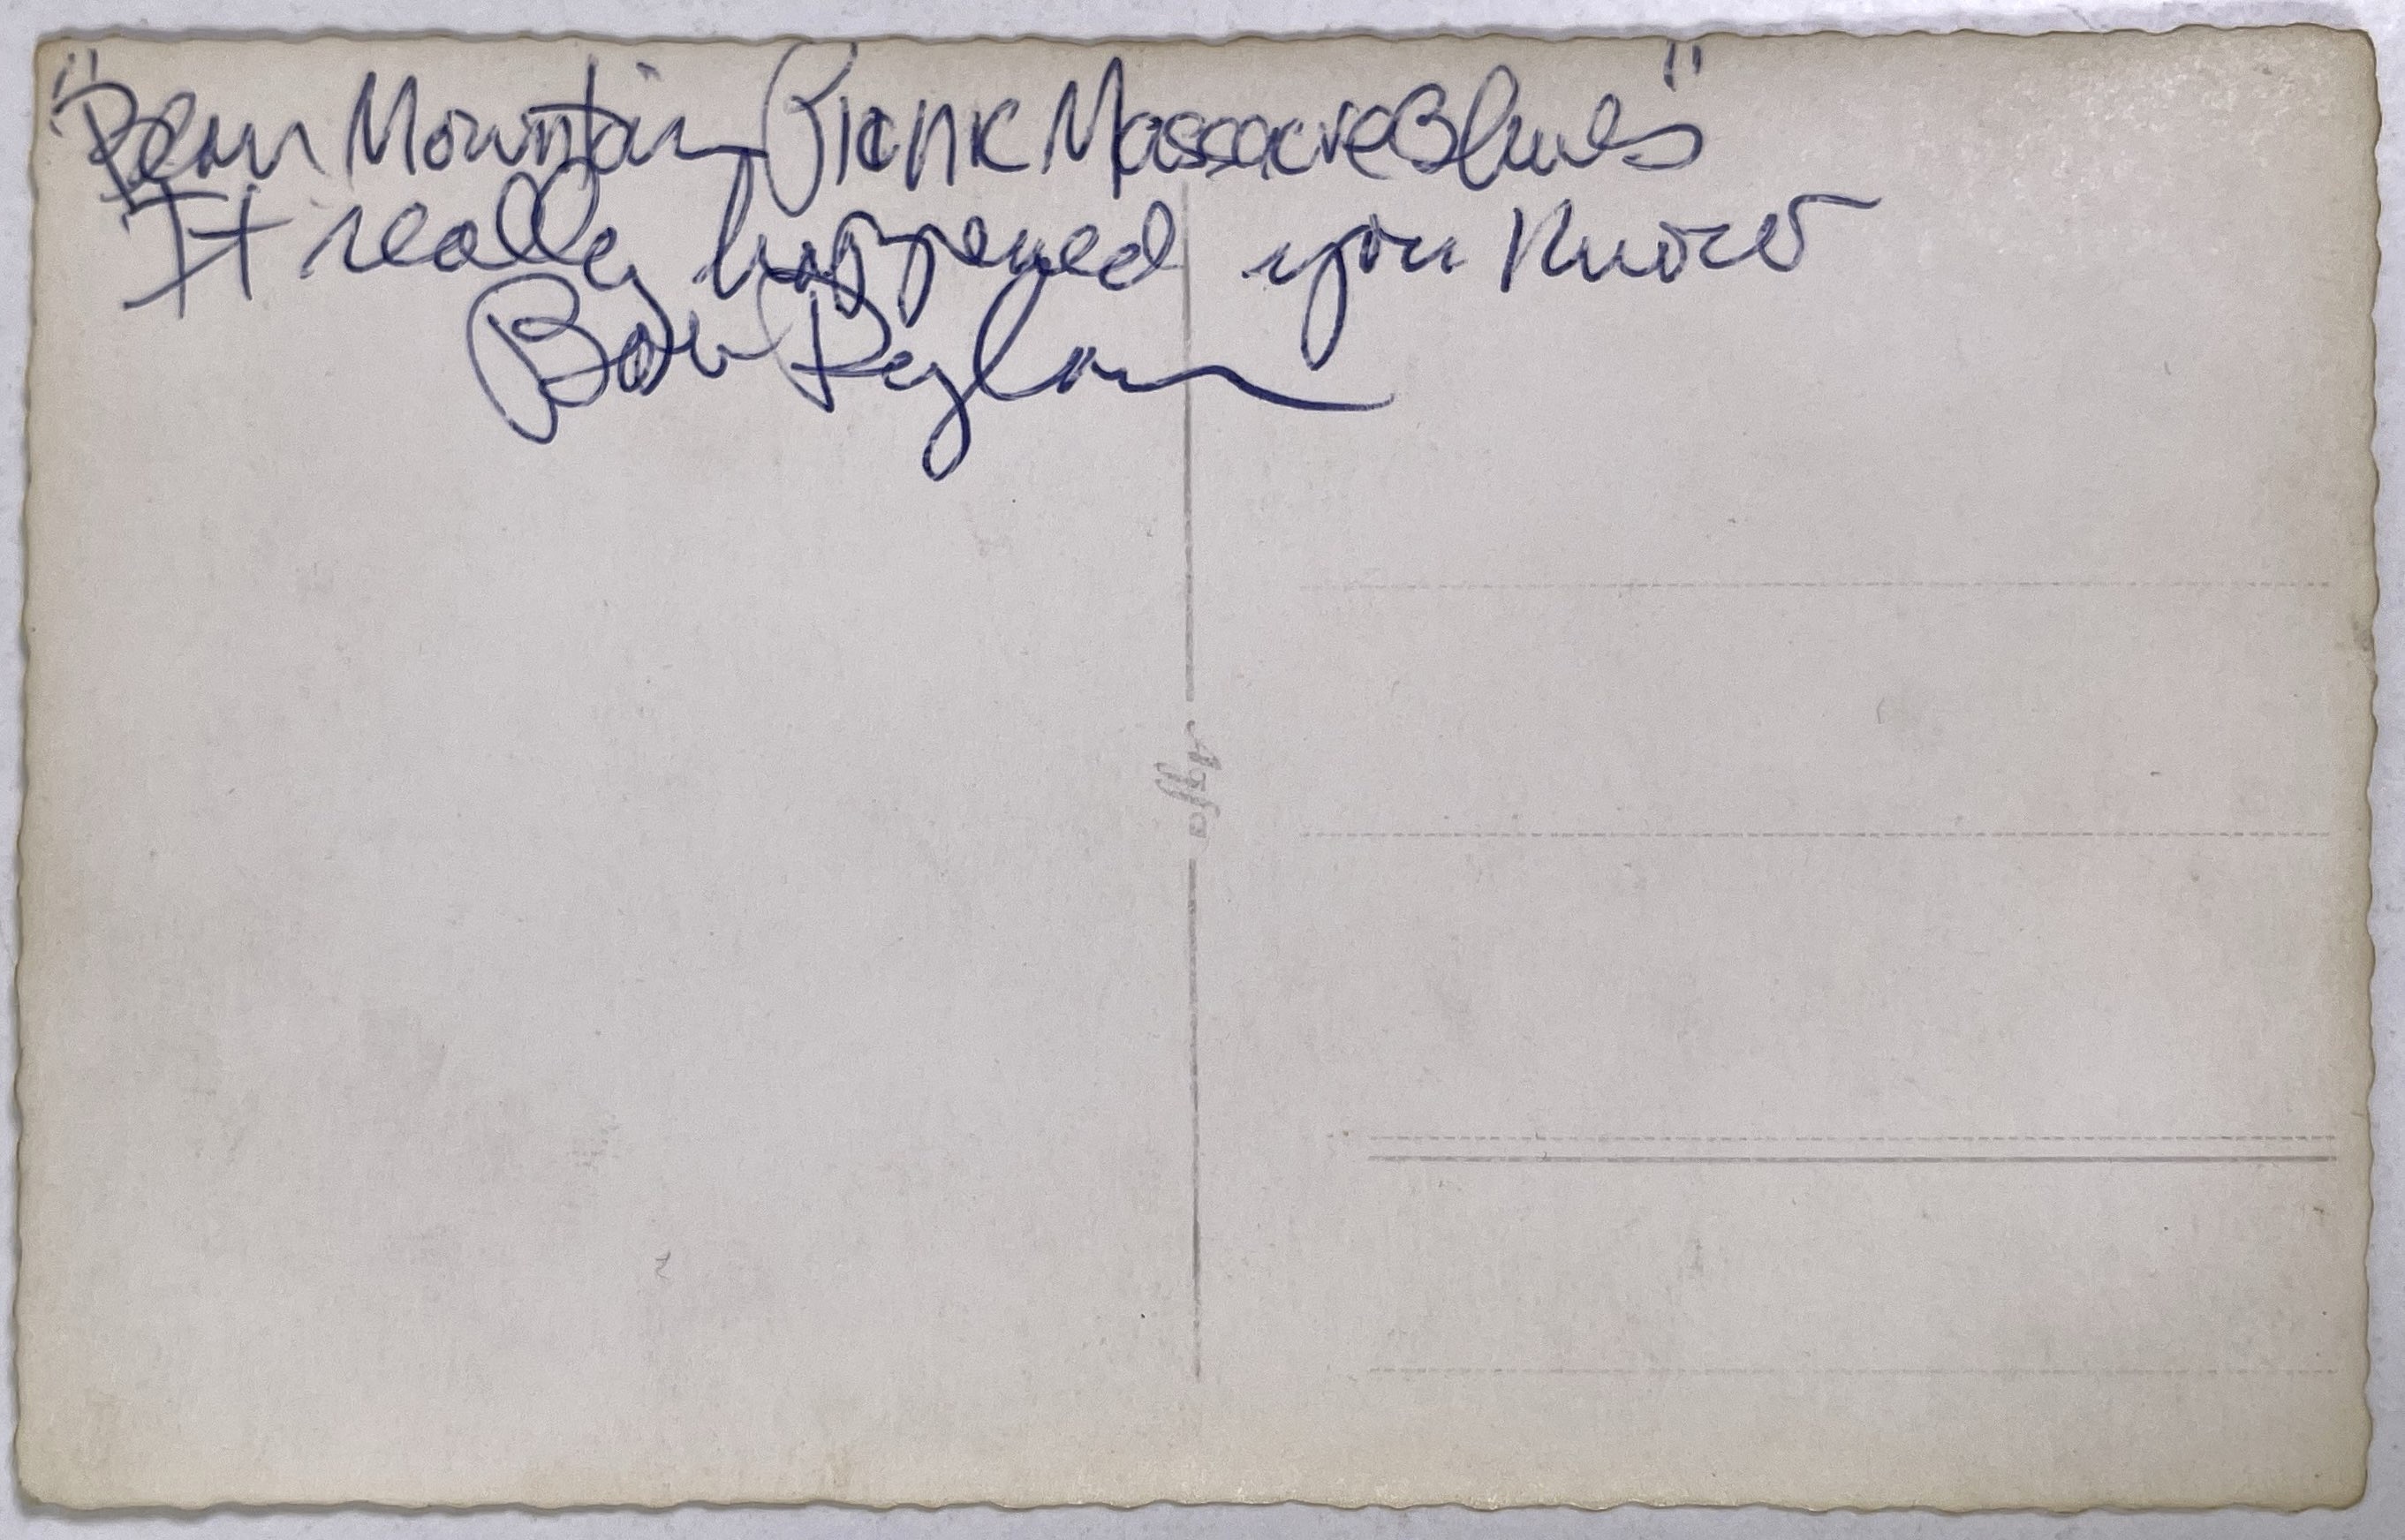 "Bear Mountain Picnic Massacre Blues"
It really happened you know
Bob Dylan
Agfa